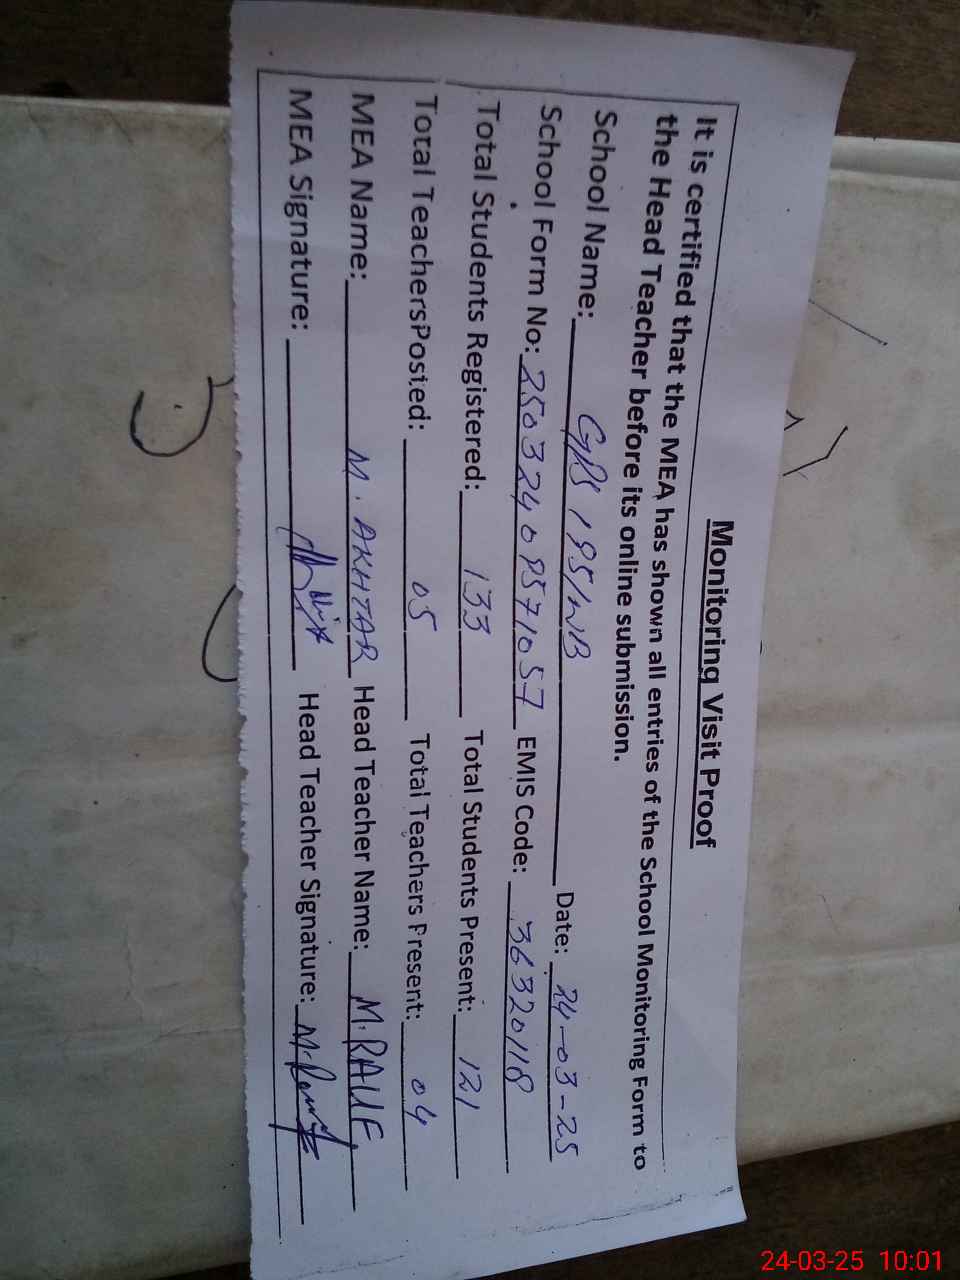 Monitoring Visit Proof
It is certified that the MEA has shown all entries of the School Monitoring Form to
the Head Teacher before its online submission.
School Name: GPS 195/WB Date: 24-03-25
School Form No: 25032409571057 EMIS Code: 36320118
Total Students Registered: 133 Total Students Present: 121
Total TeachersPosted: 05 Total Teachers Present: 04
MEA Name: M. AKHTAR Head Teacher Name: M. RAUF
MEA Signature: Head Teacher Signature: M. Rauf
24-03-25 10:01